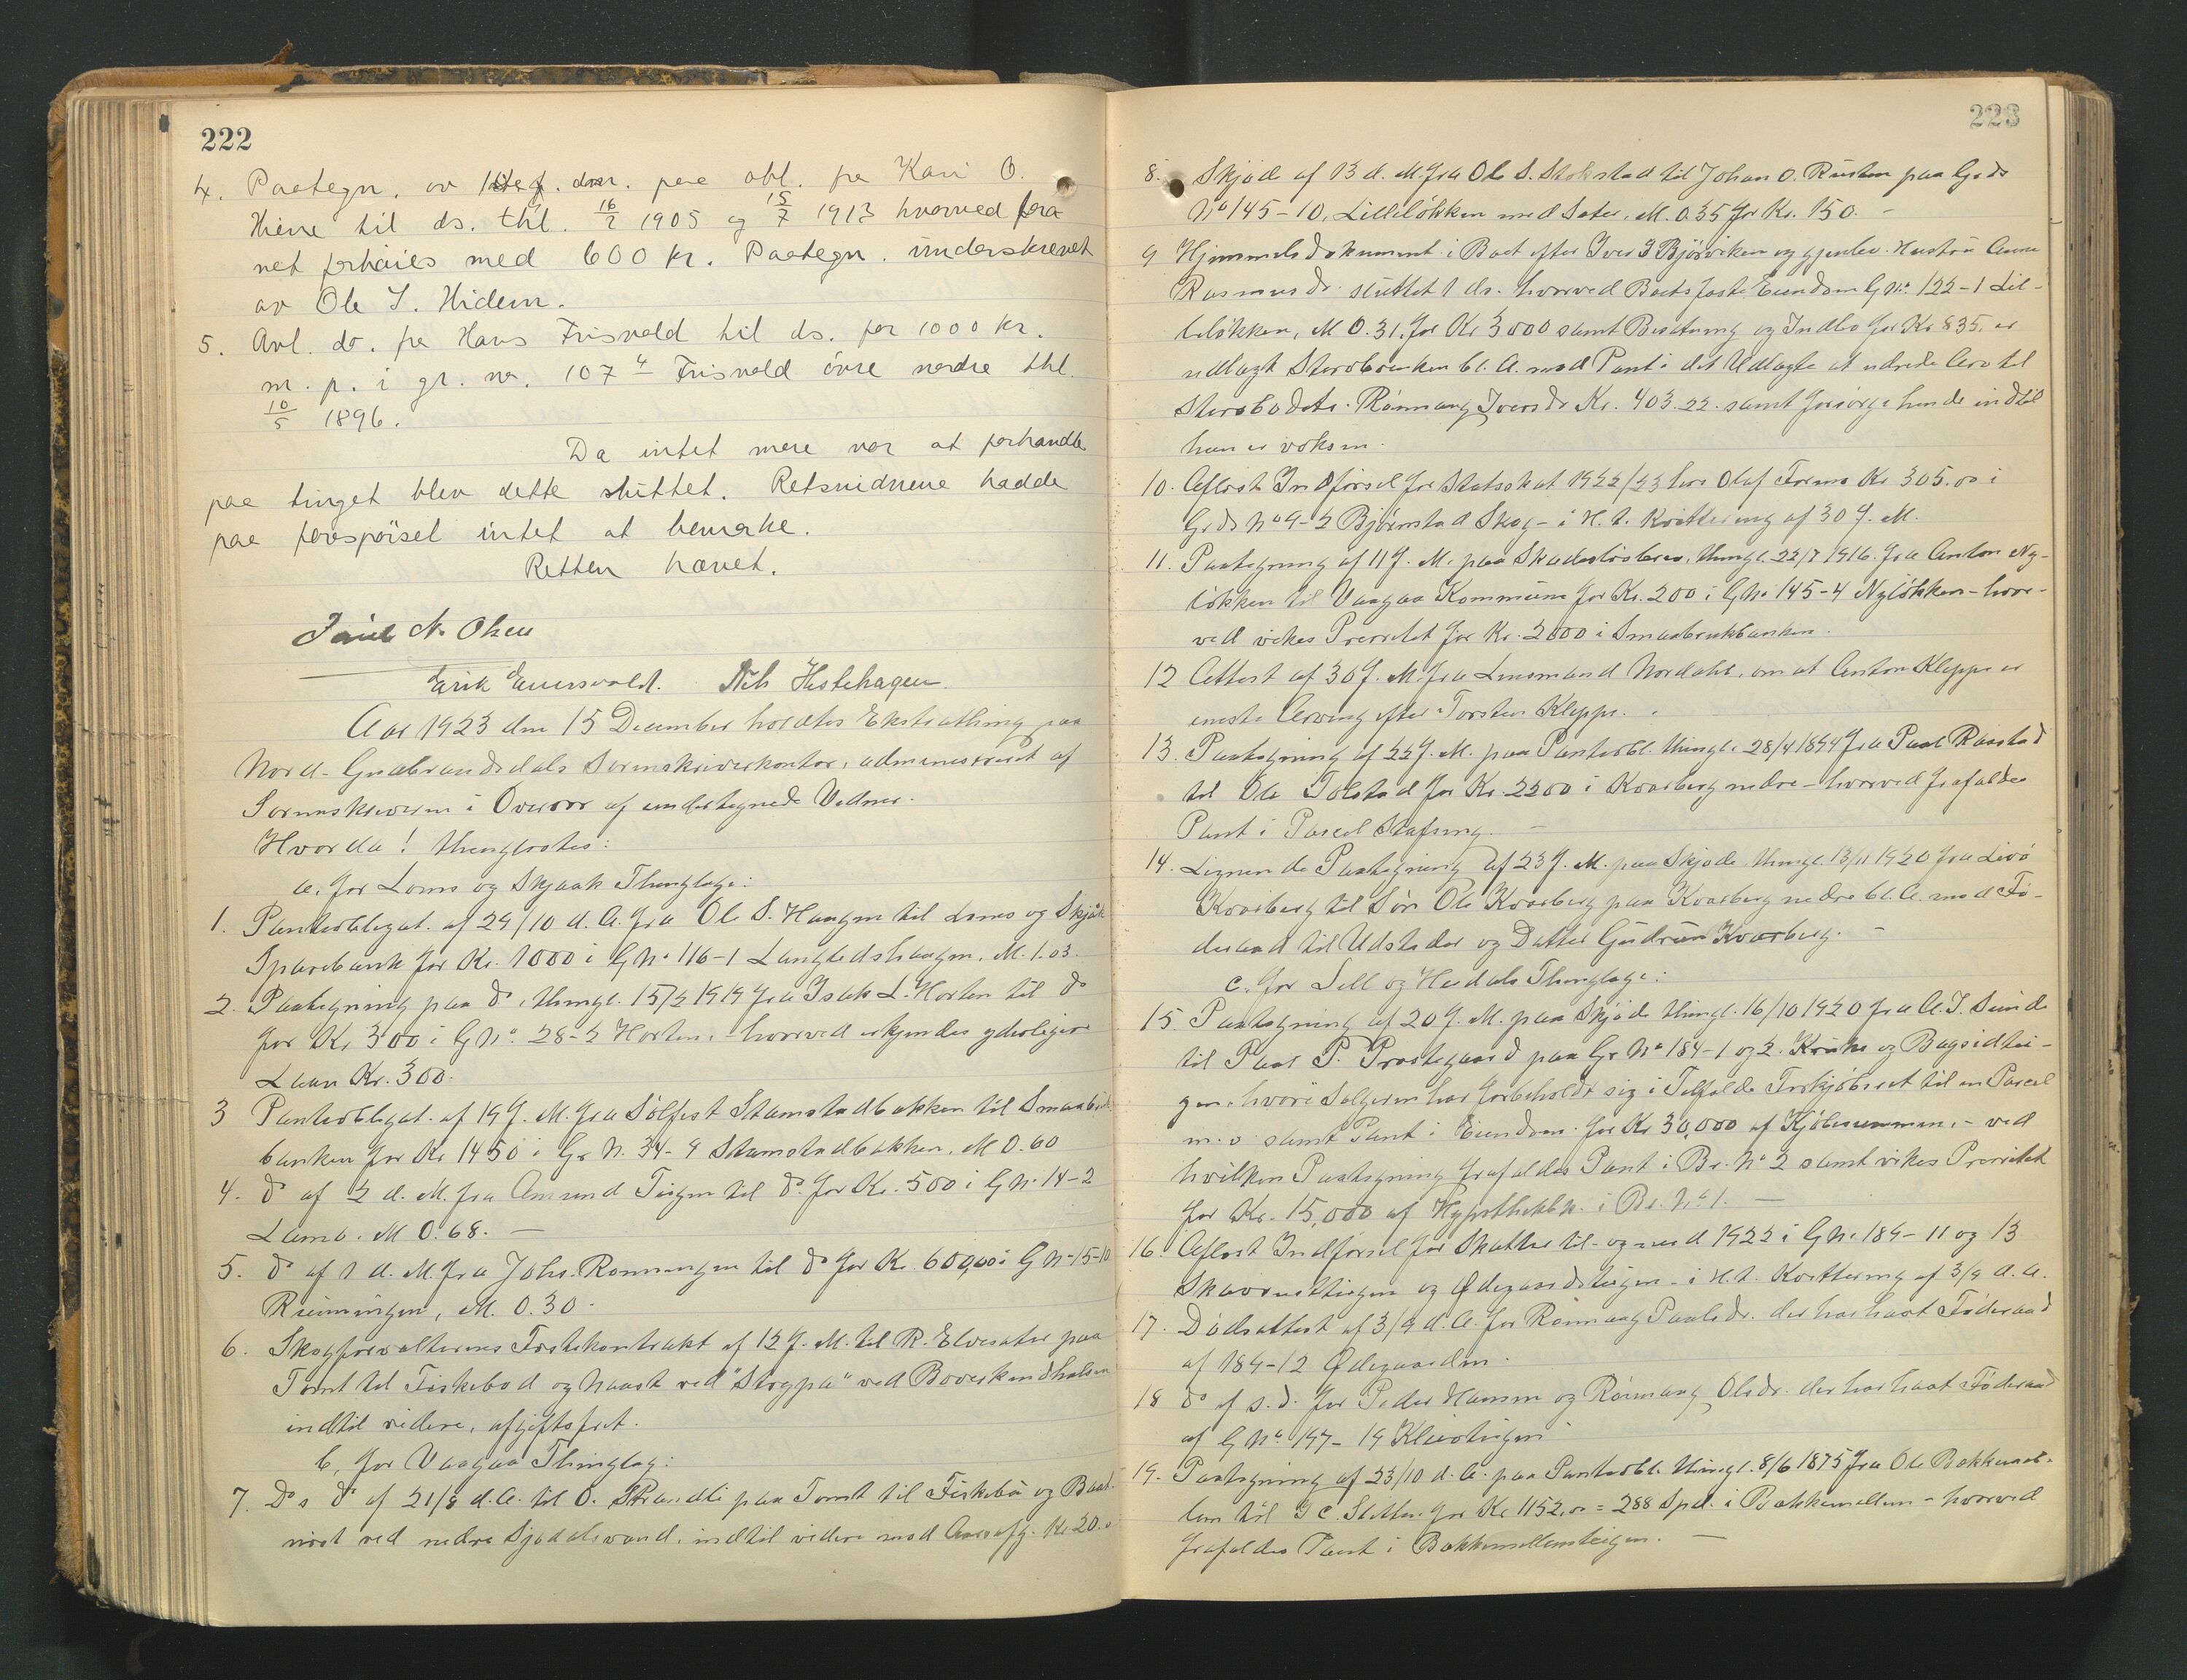 222
4. Paategn. av d. paa obl. fra Kari O.
Hiene til ds. thl. 16/2 1905 og 15/7 1913 hvorved
net forhöies med 600 kr. Paategn. underskrevet
av Ole I. Hidem.
5. Avl. do. fra Hans Frisvold til ds. for 1000 kr.
m. p. i gr. nr. 107 4 Frisvold övre nordre thl.
10/5 1896.
Da intet mere var at forhandle
paa tinget blev dette sluttet. Retsvidnene hadde
paa forespörsel intet at bemerke.
Retten hævet.
Paul N. Olsen
Erik Nils Hestehagen.
Aar 1923 den 15 December holdtes Ekstrathing paa
Nord-Gudbrandsdals Sorenskriverkontor, administreret af
Sorenskriveren i Overvær af undertegnede Vidner.
Hvorda! thinglæstes:
a. for Loms og Skjaak Thinglage:
1. Panteobligat. af 29/10 d. A. fra Ole S. Haugen til Loms og Skjåk
Sparebank for Kr. 1000 i G No 116-1 M. 1.03.
2. Paategning paa do, thingl. 15/2 1919 fra Isak L. Horten til do
for Kr 300 i G No. 28-2 Horten, - hvorved erkjendes yderligere
Laan Kr. 300.
3 Panteobligat. af 19 f. M. fra Sölfest Stamstadbakken til
banken for Kr 1450 i Gr N. 34-9 Stamstadbakken, M 0.60
4. do af 2 d. M. fra Amund Teigen til do for Kr. 500 i G No 14-2
M 0.68. -
5. do af 1 d. M. fra Johs. Rönningen til do for Kr. 600,00 i G No 15-10
M. 0.30.
6. Skogforvalterens Festekontrakt af 12 f. M. til R. Elvesæter paa
Tomt til Fiskebod og Naust ved
indtil videre, afgiftsfrit.
b. for Vaagaa Thinglag:
7. Do s do af 21/8 d. A. til O. Strandli paa Tomt til Fiskebu og
ved nedre Sjodalsvand, indtil videre mod Aarsafg. Kr. 20.
223
8. Skjöde af 13 d. M. fra Ole S. Stokstad til Johan O. Rusten paa Grds
No 145-10, Lillelökken med Sæter, M. 0.35 for Kr. 150. -
9 Hjemmelsdokument i Boet efter Iver I Björviken og gjenlev. Hustru Anne
Rasmusdr. sluttet 1 ds. hvorved Boets faste Eiendom G No. 122-1 Lil-
lelökken, M 0.31, for Kr 3000 samt Besætning og Indbo for Kr. 835. er
udlagt Stervboenken bl. A. mod Pant i det Udlagte at udrede Arv til
Stervbodatr. Rönnaug Iversdr Kr. 403.22. samt forsörge hende indtil
hun er voksen.
10. Aflæst Indförsel for Statsskat 1922/23 hos Olaf Formo Kr 305.00 i
Grds No 9-2 Bjørnstad Skog - i H. t. Kvittering af 30 f. M.
11. Paategning af 11 f. M. paa Skadeslösbrev, thingl. 22/7 1916. fra Anton Ny-
lökken til Vaagaa Kommune for Kr. 200 i G No 145-4 Nylökken - hvor-
ved vikes Prioritet for Kr. 2000 i Smaabrukbanken.
12 Attest af 30 f. M. fra Lensmand Nordahl, om at Anton Kleppe er
eneste Arving efter Torsten Kleppe.
13. Paategning af 22 f. M. paa Panteobl. thingl. 28/4 1894 fra Paal Raastad
til Ole Tolstad for Kr. 2200 i Kvarberg nedre - hvorved frafaldes
Pant i Parcel -
14. Lignende Paategning af 23 f. M. paa Skjöde thingl. 13/11 1920 fra Livö
Kvarberg til Sön Ole Kvarberg paa Kvarberg nedre bl. A. mod Fö-
deraad til Udsteder og Datter Gudrun Kvarberg. -
c. for Sell og Heidals Thinglage:
15. Paategning af 20 f. M. paa Skjöde thingl. 16/10 1920 fra A. I. Sunde
til Paal P. Prestegaard paa Gr No 184-1 og 2. Kruke og Bagsidtei-
gen, hvori Sælgeren har forbeholdt sig i Tilfælde Forkjöbsret til en Parcel
m. v. samt Pant i Eiendom. for Kr 30,000 af Kjöbesummen, - ved
hvilken Paategning frafaldes Pant i Br. No 2 samt vikes Prioritet
for Kr. 15,000 af Hypothekbk. i Br. No 1. -
16. Aflæst Indförsel for Skatter til - og med 1922 i G No 184-11 og 13
og Ødegaardsteigen - i H. t. Kvittering af 3/9 d. A.
17. Dödsattest af 3/9 d. A. for Rönnaug Paalsdr. der har havt Föderaad
af 184-12 Ødegaarden.
18 do af s. d. for Peder Hansen og Rönnaug Olsdr. der har havt Föderaad
af G No. 197-19
19. Paategning af 23/10 d. A. paa Panteobl. thingl. 8/6 1875 fra Ole Bakkemel-
lem til I C. for Kr 1152,00 = 288 Spd. i Bakkemellem - hvorved
frafaldes Pant i Bakkemellemteigen. -